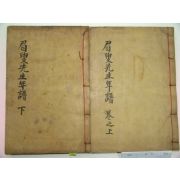 眉叟先生年譜 卷之上
眉叟先生年譜 下